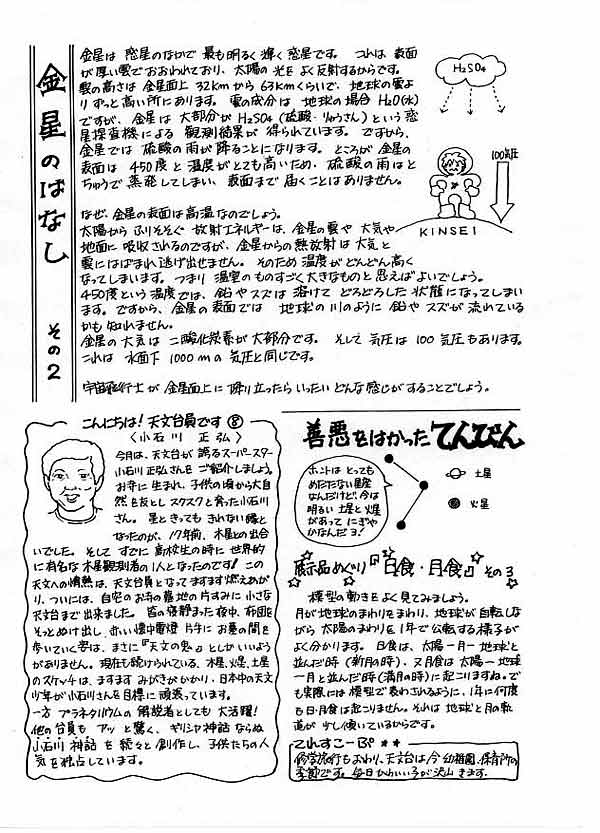 金星のはなし その2
金星は 惑星のなかで 最も明るく輝く惑星です。 これは 表面
が厚い雲でおおわれており、太陽の光をよく反射するからです。
雲の高さは 金星面上 32kmから 63kmくらいで、地球の雲よ
りずっと高い所にあります。 雲の成分は 地球の場合 H2O(水)
ですが、金星は 大部分が H2SO4 (硫酸・りゅうさん) という 惑
星探査機による 観測結果が 得られています。 ですから、
金星では 硫酸の雨が降ることになります。 ところが 金星の
表面は 450度と 温度がとても高いため、硫酸の雨はと
ちゅうで蒸発してしまい、表面まで届くことはありません。
H2SO4
100気圧
KINSEI
なぜ、金星の表面は高温なのでしょう。
太陽からふりそそぐ 放射エネルギーは、金星の雲や 大気や
地面に 吸収されるのですが、金星からの熱放射は 大気と
雲にはばまれ逃げ出せません。 そのため 温度がどんどん高く
なってしまいます。 つまり 温室の ものすごく大きなものと 思えばよいでしょう。
450度という温度では、鉛や スズは 溶けて どろどろした 状態になってしまい
ます。ですから、金星の表面では 地球の川のように 鉛や スズが 流れている
かも知れません。
金星の大気は 二酸化炭素が 大部分です。 そして 気圧は 100気圧もあります。
これは 水面下 1000mの 気圧と同じです。
宇宙飛行士が 金星面上に 降り立ったら いったい どんな感じがすることでしょう。
こんにちは! 天文台員です ⑧
〈小石川 正弘〉
今月は、天文台が 誇るスーパースター
小石川正弘さんを ご紹介しましょう。
お寺に 生まれ、子供の頃から大自
然を友とし スクスクと育った小石川
さん。 星ときっても きれない縁と
なったのが、17年前、木星との出合
いでした。 そして すでに 高校生の時に 世界的
に有名な 木星観測者の1人となったのです! この
天文への情熱は、天文台員となってますます燃えあが
り、ついには、自宅のお寺の墓地の片すみに 小さな
天文台まで出来ました。 皆の寝静まった夜中、布団を
そっとぬけ出し、赤い懐中電燈 片手に お墓の間を
歩いていく姿は、まさに『天文の鬼』としかいいよう
がありません。 現在も続けられている、木星、火星、土星
のスケッチは、ますます みがきがかかり、日本中の天文
少年が小石川さんを目標に 頑張っています。
一方 プラネタリウムの 解説者としても 大活躍!
他の台員も アッと驚く、ギリシャ神話ならぬ
小石川 神話 を 続々と 創作し、子供たちの人
気を独占しています。
善悪をはかった てんびん
ホントは とっても
めだたない星座
なんだけど、今は
明るい 土星と 火星
があって にぎや
かなんだョ!
土星
火星
展示品めぐり『日食・月食』その3
模型の動きを よく見てみましょう。
月が地球のまわりをまわり、地球が自転しな
がら 太陽のまわりを 1年で 公転する 様子が
よく分かります。 日食は、太陽一月一地球と
並んだ時(新月の時)、又月食は 太陽一地球
一月と並んだ時(満月の時)に起こりますね。で
も実際には 模型で表わされるように、1年に何度
も 日・月食は 起こりません。 それは 地球と 月の軌
道が 少し傾いているからです。
てれすこーぷ ★★
修学旅行もおわり、天文台は 今 幼稚園、保育所の
季節です。毎日かわいい子が沢山きます。